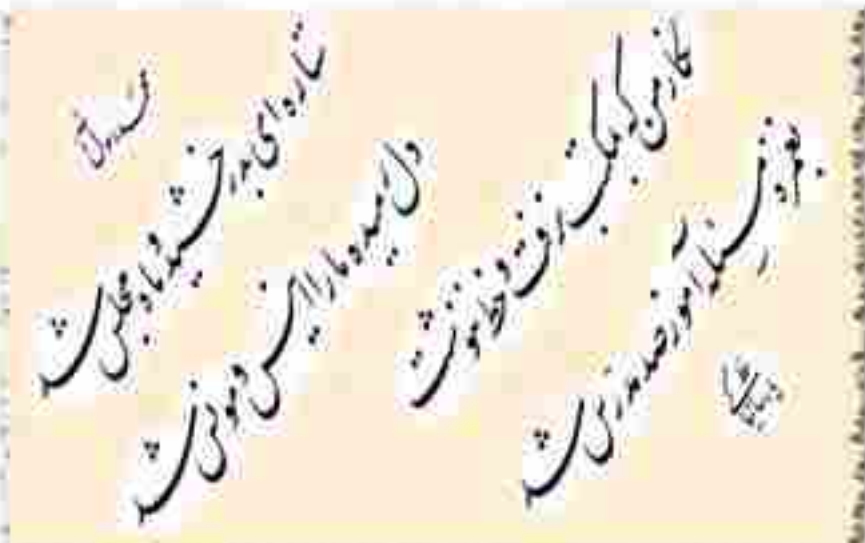 ستاره ای بدرخشید و ماه مجلس شد
دل رمیده ما را انیس و مونس شد
نگار من که بمکتب نرفت و خط ننوشت
بغمزه مسئله آموز صد مدرس شد